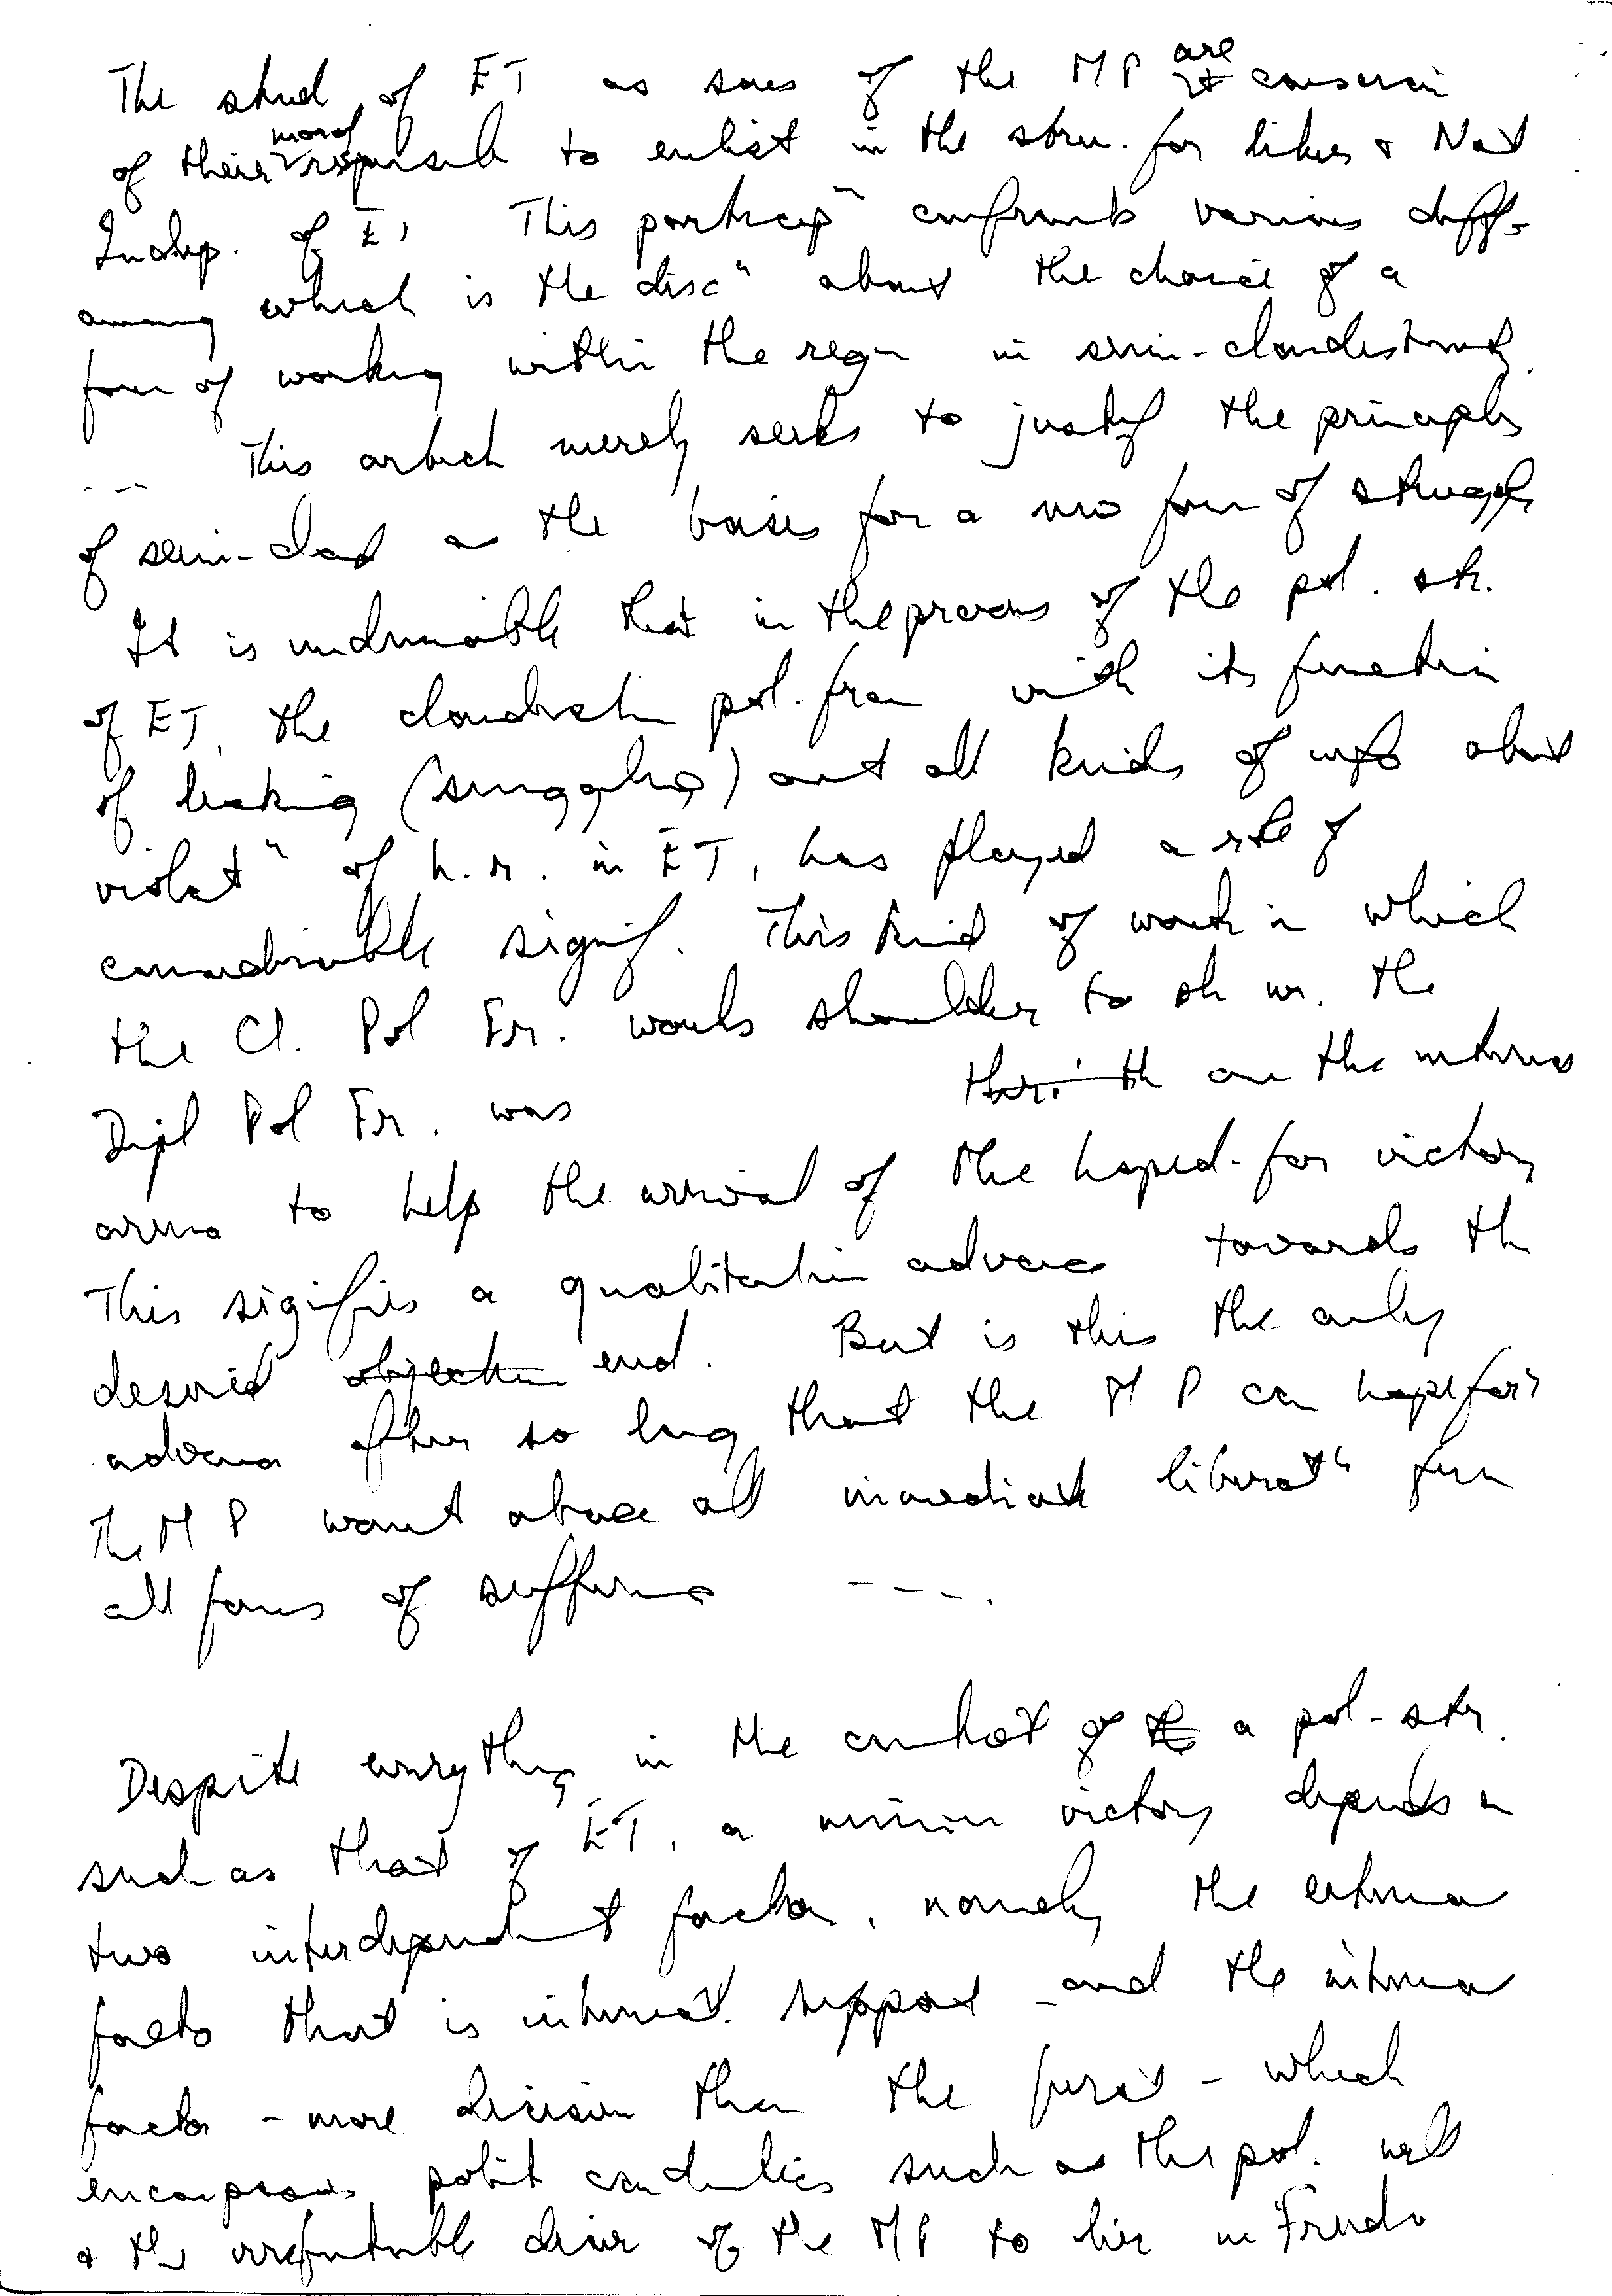 The stud of ET as sons of the MP are conscien
of their moral responsib to enlist in the stru. for liber & Nat
Indep. of ET This particip" confronts various diff-
among which is the disc" about the choice of a
form of working within the regn in semi-clandestinity.
--- This article merely seeks to justify the principle
of semi-cland as the basis for a new form of struggle
It is undeniable that in the process of the pol. str.
of ET, the clandestin pol. fron with its function
of leaking (smuggling) out all kinds of info about
violat" of h.r. in ET, has played a role of
considerable signif. This kind of work in which
the Cl. Pol Fr. works shoulder to sh w. the
Dipl Pol Fr. was on the internal
arena to help the arrival of the hoped-for victory
This signifies a qualitative advance towards th
desired end. But is this the only
advance after so long that the MP can hope for?
The MP want above all immediate liberat" from
all forms of suffering ---.
Despite everything, in the context of a pol-str.
such as that of ET, a victory depends on
two interdependent factors, namely the external
factor that is internat. support - and the internal
factor - more decisive than the first - which
encompasses polit conditions such as the pol. will
& the irrefutable desire of the MP to live in Freedo